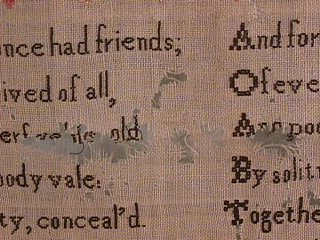 once had friends;
ived of all,
old
oody vale.
ty, conceal'd.
And for
Of eve
And poo
By solit
Togethe